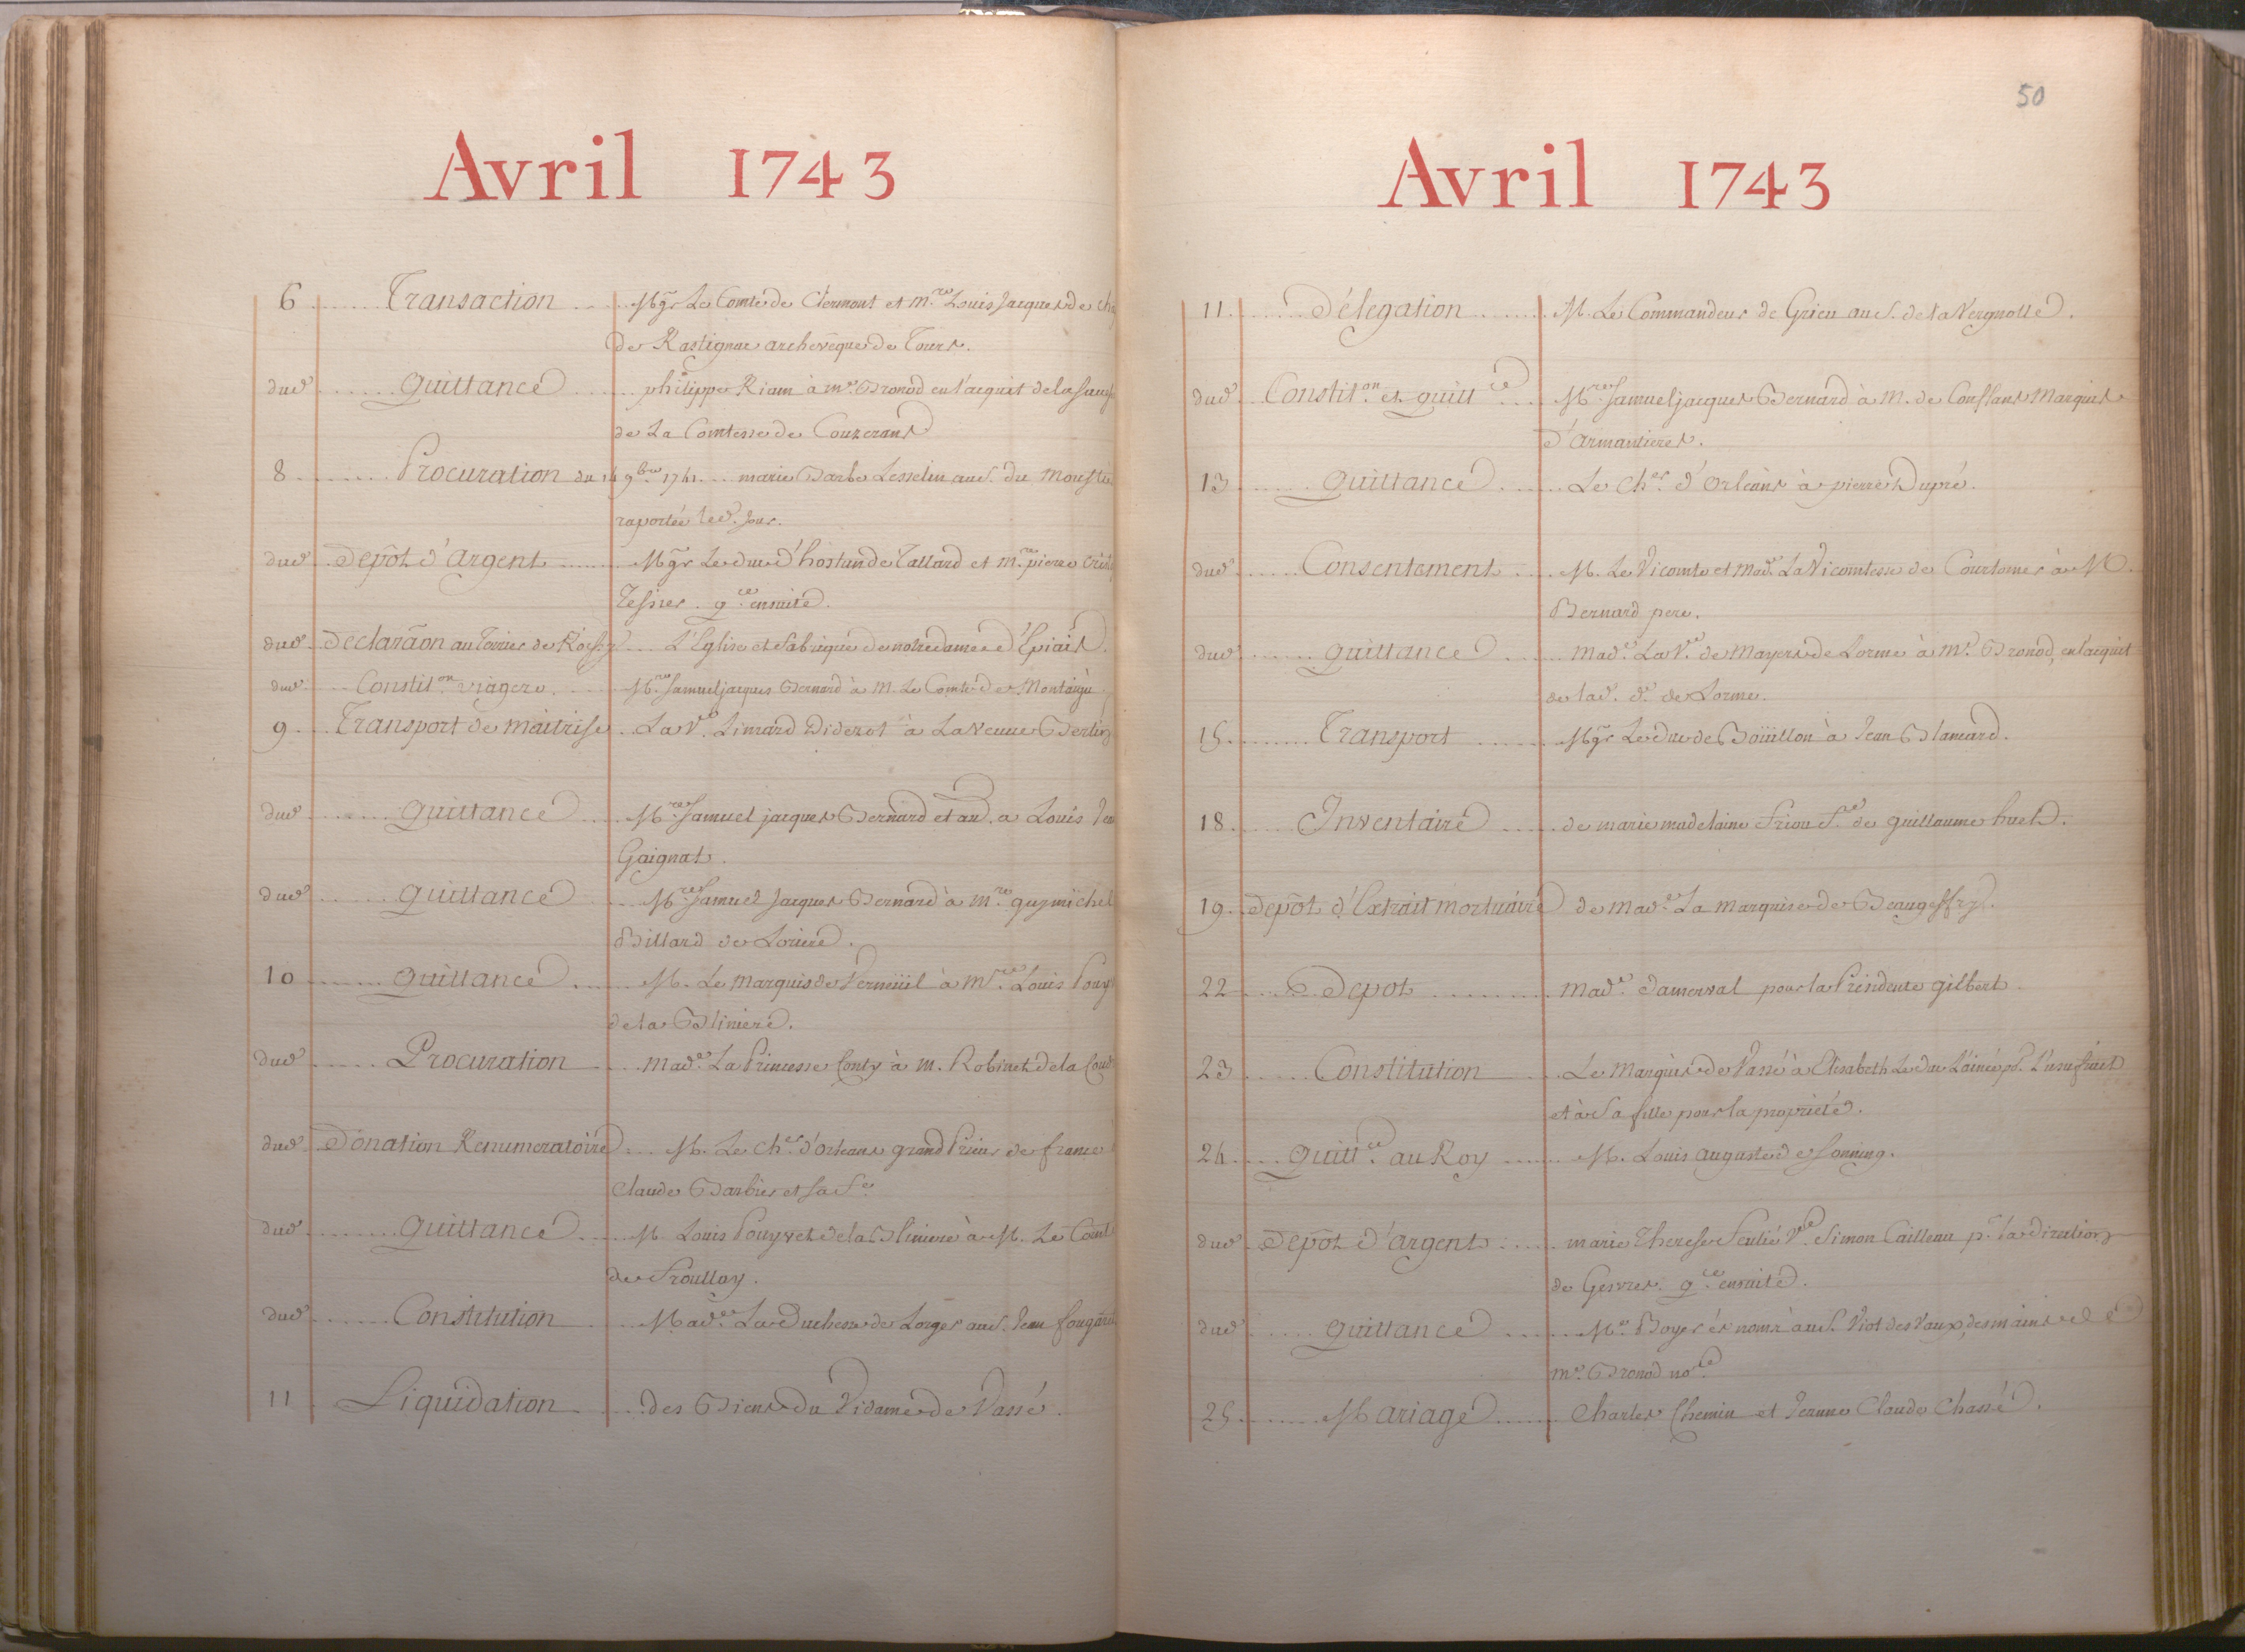 Avril 1743
6 Transaction Mgr Le Comte de Clermont et m.re Louis Jacques de
de Rastignac archevêque de Tours.
dud Quittance philippe Riam à me. Bronod en l'acquit de la
de La Comtesse de Couzerans
8 Procuration du 14 9.bre 1741 marie Barbe Lesselin au s. du
raportée led. Jour.
dud Depôt d'Argent Mgr Le duc d'hostun de Tallard et m.re pierre
Tesnier. q.ce ensuite.
dud Declarãon au Terrier de Roissy L'Eglise et fabrique de notre dame d'Epiais
dud Constit.on viagere. M.re Samuel jacques Bernard à M. Le Comte de Montaigu
9 Transport de maitrise La V.e Limard Diderot à La Veuve
dud Quittance M.re Samuel jacques Bernard et au. a Louis
Gaignat.
dud Quittance M.re Samuel Jacques Bernard à m.re guy michel
Billard de Loriere.
10 Quittance M. Le Marquis de Verneüil à m.re Louis
de la Bliniere.
dud Procuration Mad.e La Princesse Conty à M. Robinet de la
dud Donation Remuneratoire M. Le Ch.er d'Orleans grand Prieur de france
Claude Barbier et sa f.e
dud Quittance M. Louis Pouyvet de la Bliniere à M. Le
de Froullay.
dud Constitution Mad.e La Duchesse de Lorges au s. Jean
11 Liquidation des Biens du Vidame de Vassé.
50
Avril 1743
11 Délegation M. Le Commandeur de Grieu au s. de la Vergnolle.
dud Constit.on et quitt.ce M.re Samuel jacques Bernard à M. de Conflans Marquis
d'Armantieres.
13 Quittance Le Ch.er d'Orléans à pierre Dupré.
dud Consentement M. Le Vicomte et Mad.e La Vicomtesse de Courtomer à M.
Bernard pere.
dud Quittance Mad.e La V.e de Mayers de Lorme à Me. Bronod, en l'acquit
de lad. d.e de Lorme.
15 Transport Mgr Le Duc de Boüillon à Jean Blancard.
18 Inventaire de marie madelaine Friou f.e de guillaume huet.
19 Depôt d'Extrait mortuaire de Mad.e La marquise de
22 Depot Mad.e Damerval pour la Presidente gilbert.
23 Constitution Le Marquis de Vassé à Elisabeth Le Duc L'ainée p.r L'usufruit
et à sa fille pour la propriété.
24 Quitt.ce au Roy M. Louis Auguste de Sonning.
dud Depôt d'argent marie Therese V.ve Simon Cailleau p.r la direction
de Gesvres. q.ce ensuite.
dud Quittance Me. Boyer és noms au s. Viot des Vaux, des mains de
Me. Bronod no.re
25 Mariage Charles Chemin et Jeanne Claude Chassé.